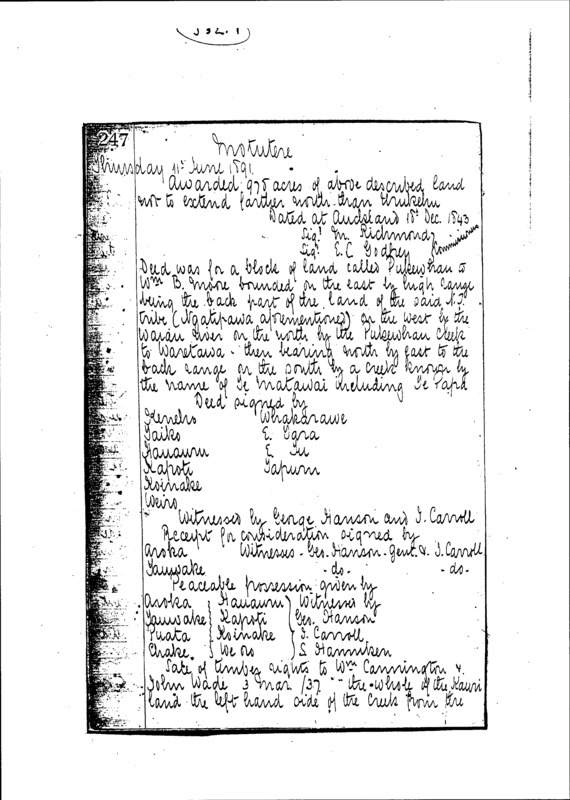 352.1
247
Motutere
Thursday 11th June 1891.
Awarded 975 acres of above described land
not to extend farther north than
Dated at Auckland 18th Dec. 1843
Sigd M. Richmond
Sigd E. C. Godfrey Commissioners
Deed was for a block of land called Pukewhau to
Wm B. Moore bounded on the east by high range
being the back part of the land of the said N.Z.
tribe (Ngatipawa aforementioned) on the west by the
Waiau River on the north by the Pukewhau Creek
to Waretawa - then bearing north by east to the
back range on the south by a creek known by
the name of Te Matawai including Te Papa
Deed signed by
Keneho Whakarawe
Taiko E. Tara
Hauauru E Tu
Kapoti Tapurn
Koinake
Weiro
Witnessed by George Hanson and J. Carroll
Receipt for consideration signed by
Aroka Witnesses - Geo. Hanson - Gent. & J. Carroll
Tauwake - do. - - do -
Peaceable possession given by
Aroka Hauauru Witnessed by
Tauwake Kapoti Geo. Hanson
Puata Koinake J. Carroll
Chake Weiro S Hanniken
Sale of timber rights to Wm Cannington &
John Wade 3 Mar /37 - "the whole of the Kauri
land the left hand side of the Creek from the